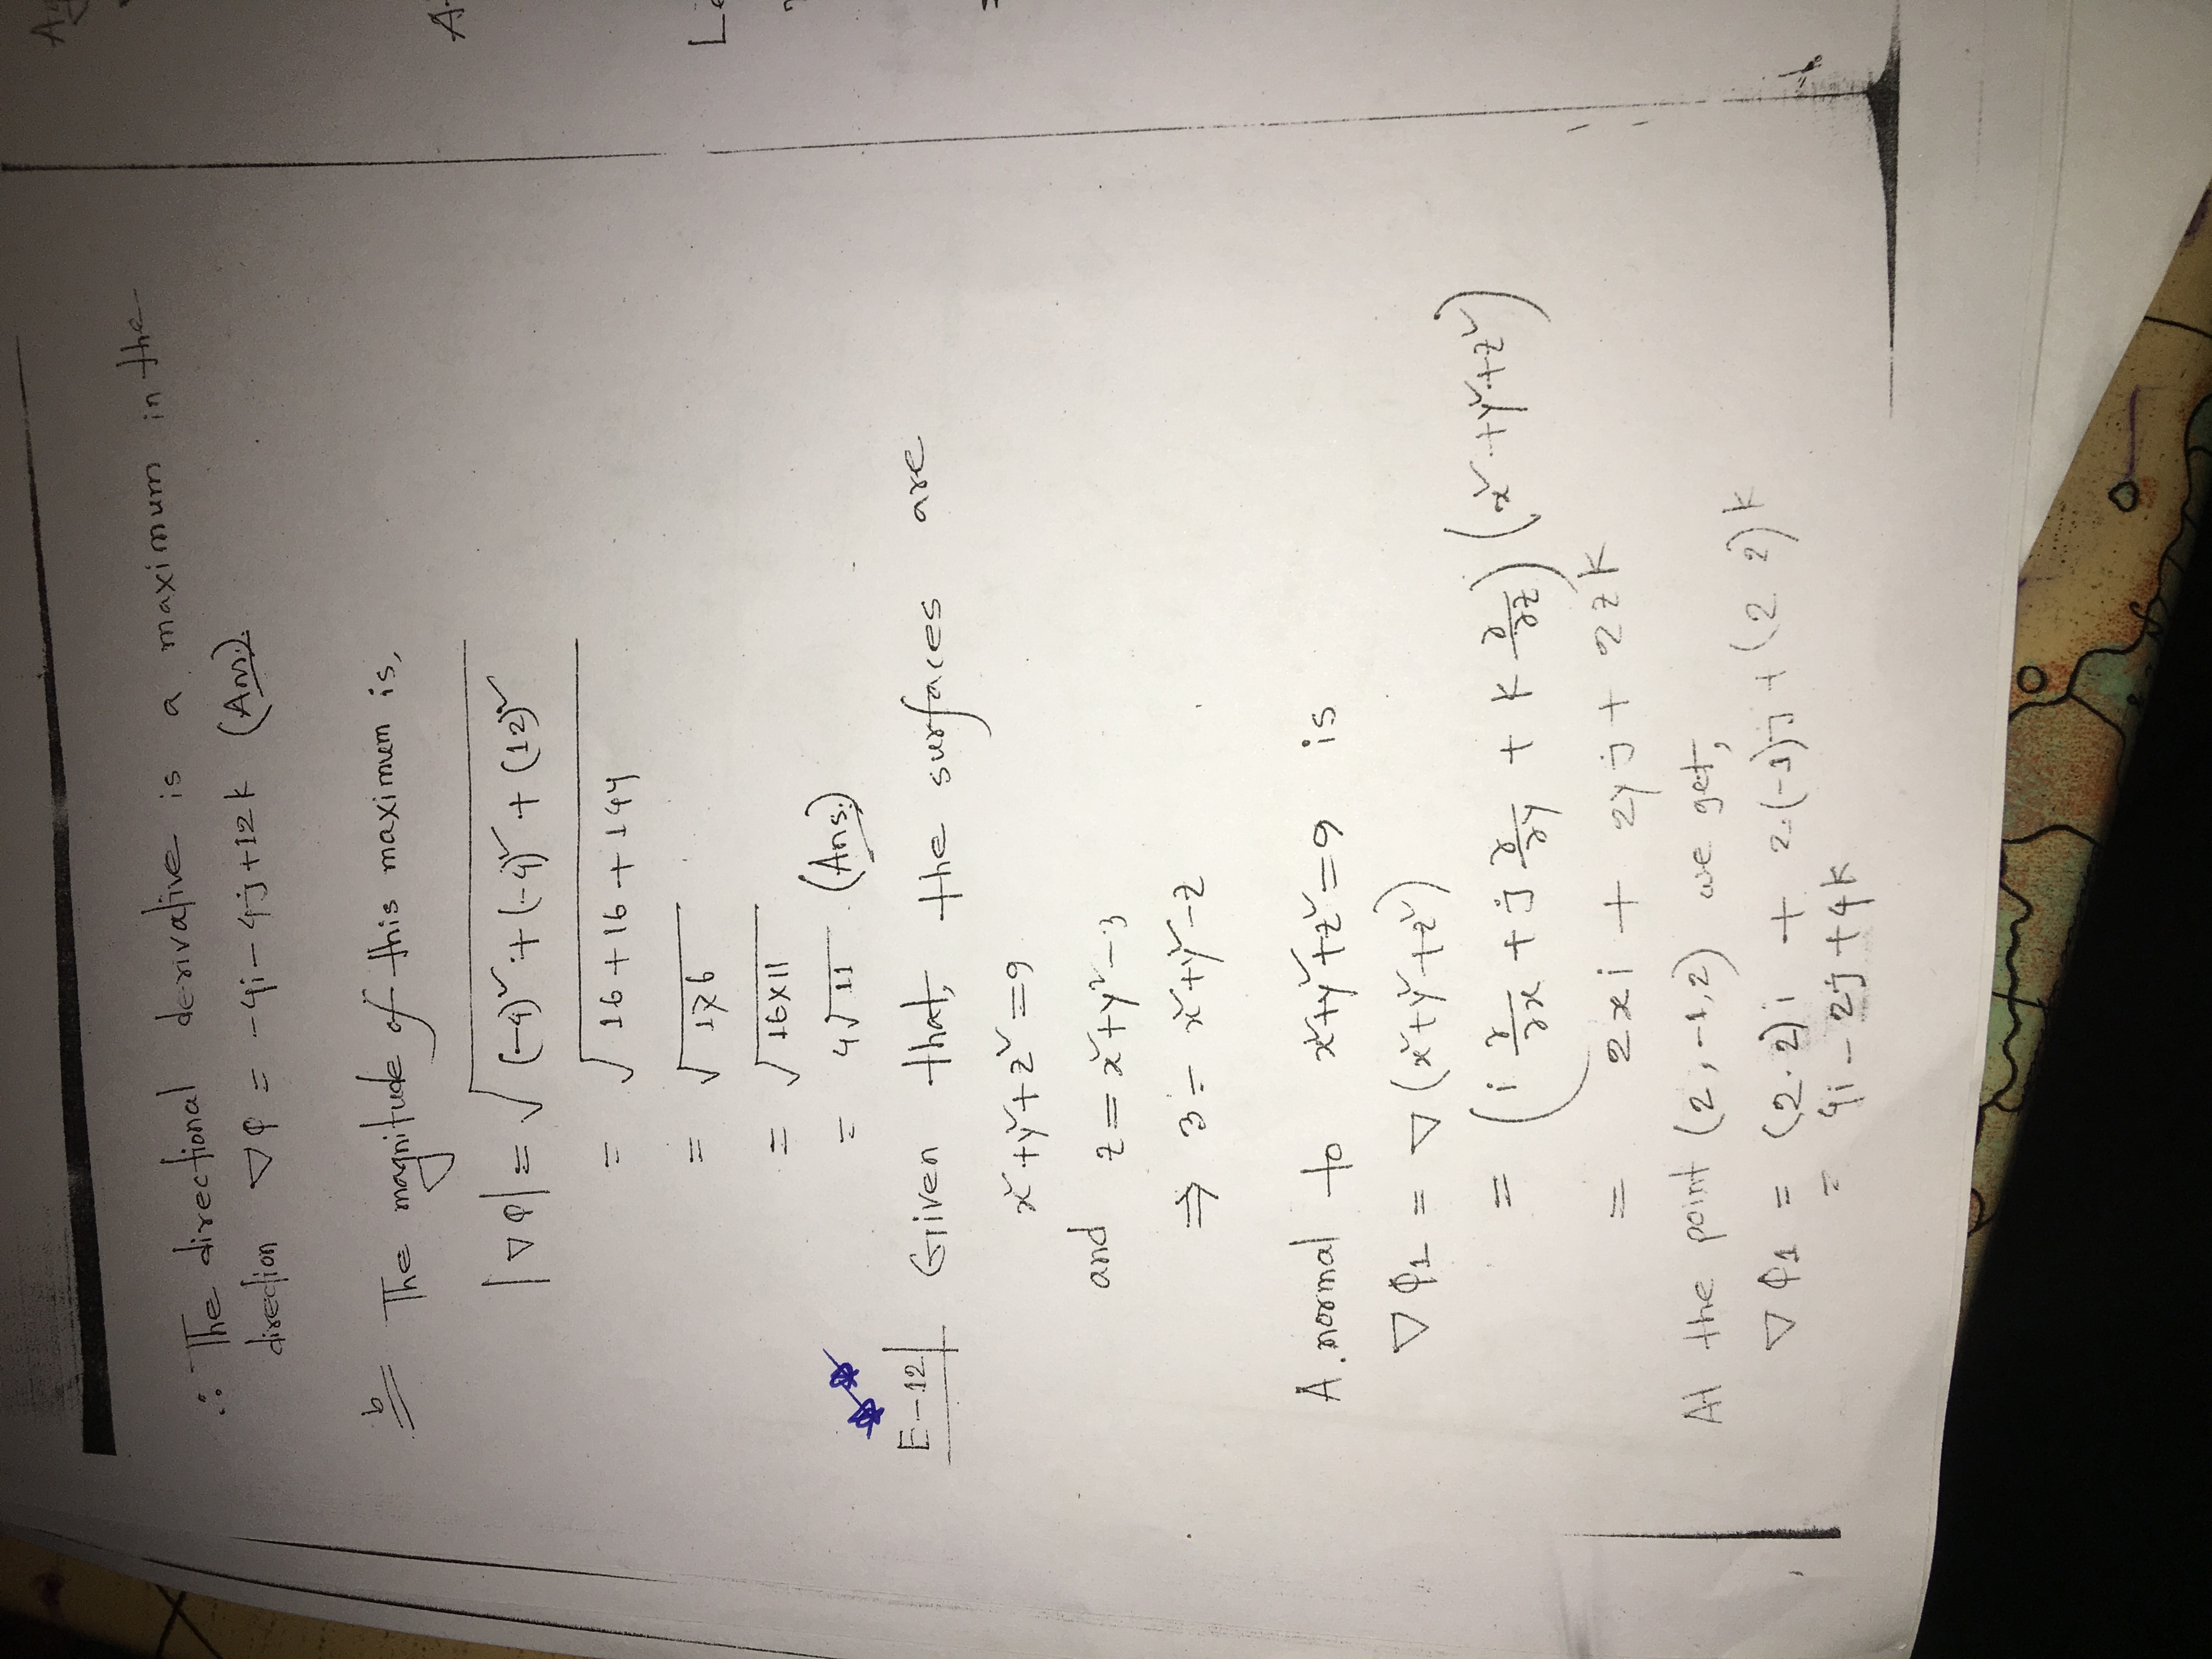 ∴ The directional derivative is a maximum in the
direction ∇φ = -4i - 4j + 12k (Ans.).
b The magnitude of this maximum is,
|∇φ| = √((-4)² + (-4)² + (12)²)
= √(16 + 16 + 144)
= √176
= √(16×11)
= 4√11 (Ans.)
E-12 Given that, the surfaces are
x² + y² + z² = 9
and z = x² + y² - 3
⇒ 3 = x² + y² - z
A normal to x² + y² + z² = 9 is
∇φ1 = ∇(x² + y² + z²)
= (i ∂/∂x + j ∂/∂y + k ∂/∂z)(x² + y² + z²)
= 2xi + 2yj + 2zk
At the point (2, -1, 2) we get,
∇φ1 = (2.2)i + 2.(-1)j + (2 2)k
= 4i - 2j + 4k